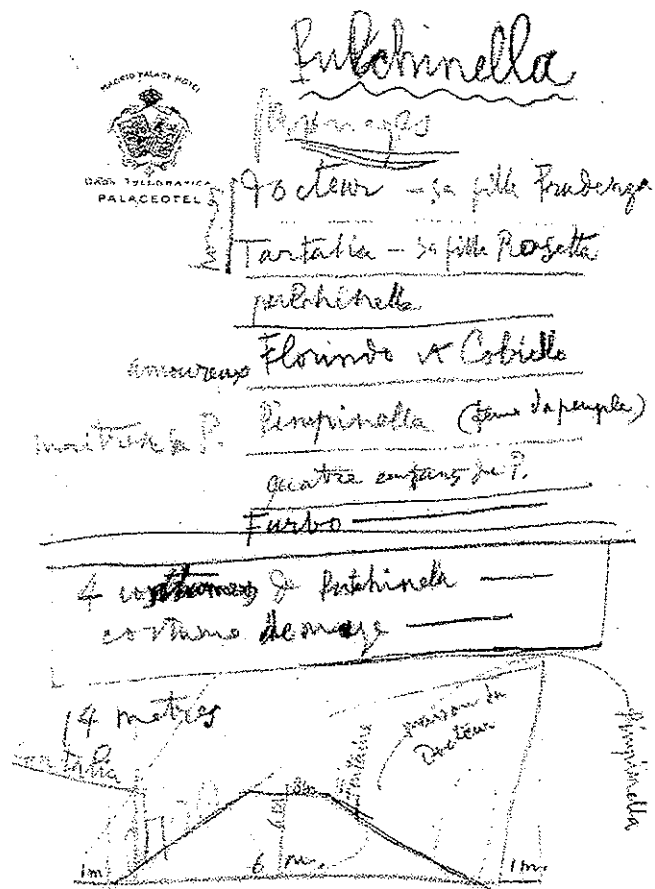 Pulchinella
MADRID PALACE HOTEL
PALACEOTEL
personages
Docteur – sa fille Prudenza
Tartalia – sa fille Rosetta
pulchinella
amoureux Florindo & Cobiello
maitresse de P. Pimpinella (femme du peuple)
quatre enfans de P.
Furbo
4 costumes de pulchinela
costume de mage
14 metres
maison du
Docteur
Tartalia
fontaine
Pimpinella
1m
6 m.
1m